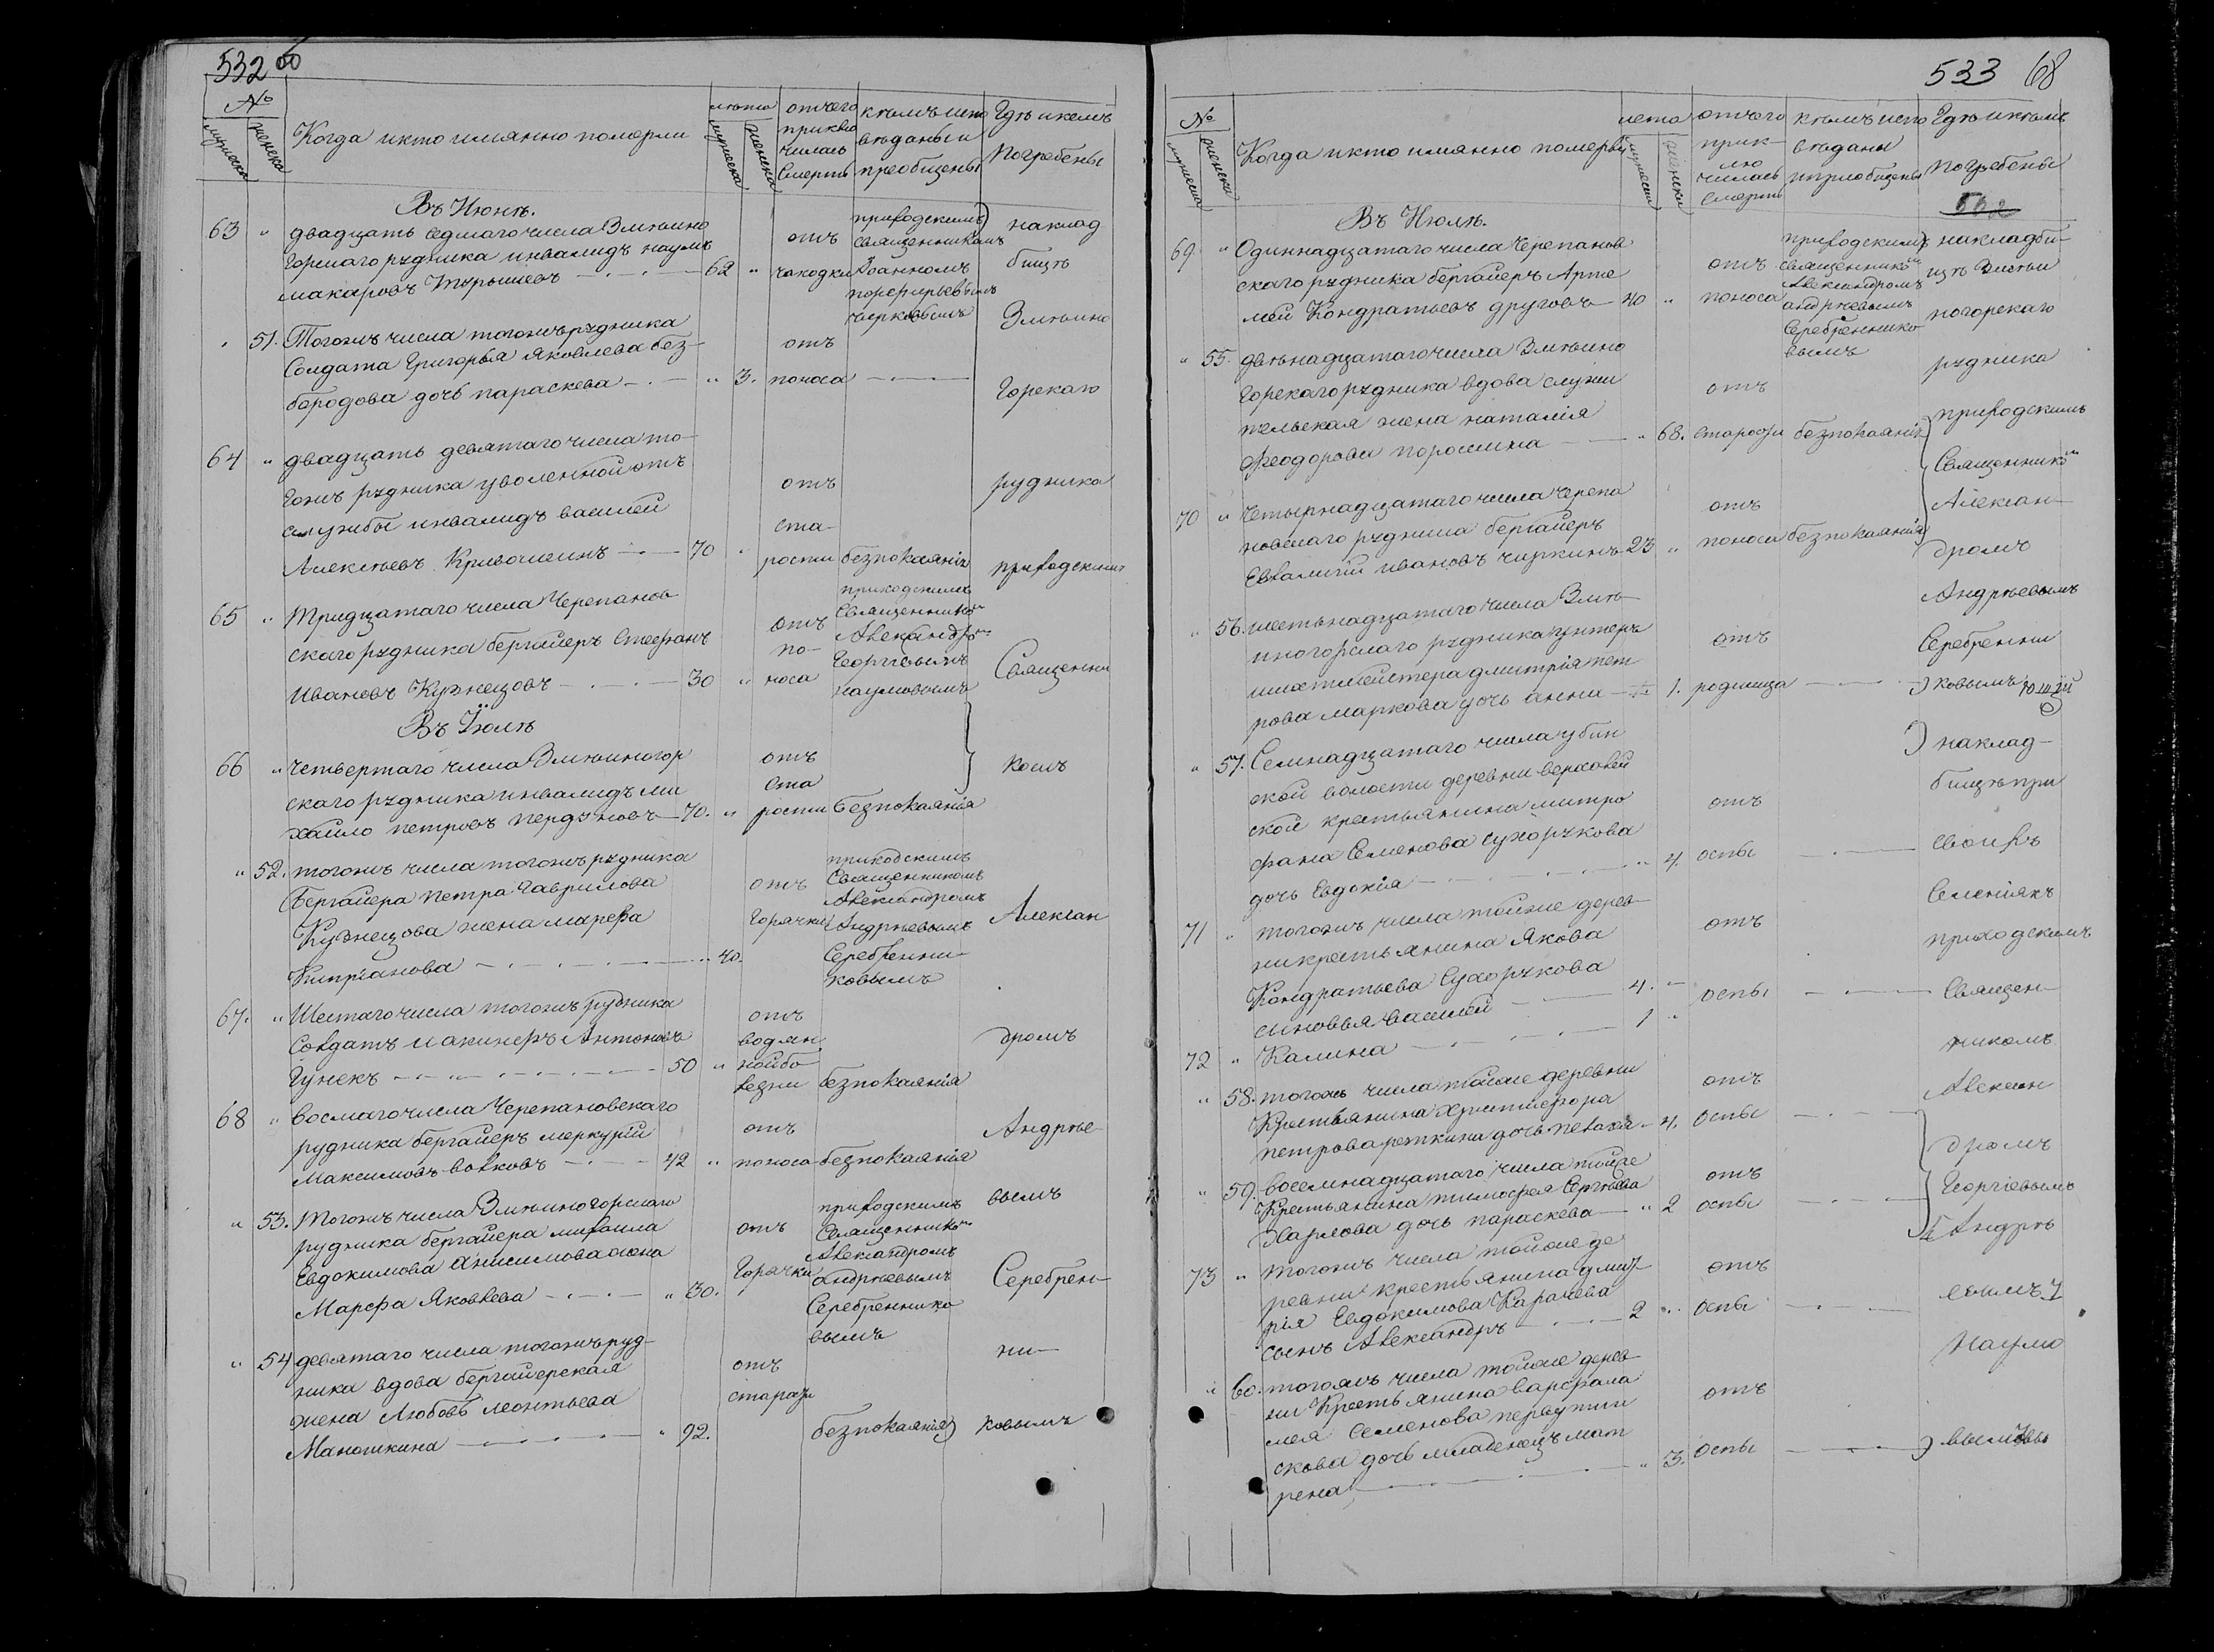 532 об
№
мужеска
женска
Когда и кто имянно померли
лета
мужеска
женска
отчего приклю
чилась
смерть
кем исповеданы и
преобщены
Где и кем
Погребены
Въ Июнѣ.
63 " двадцать седмаго числа Змѣино
горскаго рудника инвалидъ наумъ
макаровъ Турышевъ 62 "
отъ
чаходки
приходскимъ
священникомъ
Иоанномъ
порфирьевымъ
на клад
бищѣ
Змѣино
" 51. Тогожъ числа тогожъ рудника
Солдата Григорья Яковлева без-
бородова дочь параскева " 3.
отъ
поноса
Горскаго
64 " двадцать девятаго числа то-
гожъ рудника уволенной отъ
службы инвалидъ василей
Алексѣевъ Кривошеинъ 70 "
отъ
ста-
рости безпокаянія
рудника
приходскимъ
65 " Тридцатаго числа Черепанов
скаго рудника бергаеръ Стефанъ
Ивановъ Кузнецовъ 30 "
отъ
по-
носа
приходскимъ
Священникомъ
Александромъ
Георгіевымъ
наумовымъ
Священни
Въ Іюлѣ
66 " четвертаго числа Змѣиногор
скаго рудника инвалидъ ми
хайло петровъ пердуновъ 70. "
отъ
ста
рости безпокаянія
комъ
" 52. тогожъ числа тогожъ рудника
Бергаера петра Гаврилова
Кузнецова жена марефа
Кипріанова " 40.
отъ
Горячки
приходскимъ
Священникомъ
Александромъ
Андрѣевымъ
Серебренни-
ковымъ
Алексан
67. " Шестаго числа тогожъ рудника
Солдатъ иакинфъ Антоновъ
Гунекъ 50 "
отъ
водян
ной бо
лезни безпокаянія
дромъ
68 " восмаго числа Черепановскаго
рудника бергаеръ меркурій
Максимовъ волковъ 42 "
отъ
поноса безпокаянія
Андрѣе
" 53. Тогожъ числа Змѣиногорскаго
рудника бергаера михаила
Евдокимова Анисимова жена
Марфа Яковлева " 30.
отъ
Горячки
приходскимъ
Священникомъ
Александромъ
андрѣевымъ
Серебреннико
вымъ
вымъ
Серебрен-
" 54 девятаго числа тогожъ руд-
ника вдова бергаерская
жена Любовь леонтьева
Маношкина " 92.
отъ
старости
безпокаянія
ни-
ковымъ
533 68
№
мужеска
женска
Когда и кто имянно померли
лета
мужеска
женска
отчего
прик-
лю
чилась
смерть
кемъ испо
веданы
и приобщены
Где и кемъ
погребены
552
Въ Июлѣ.
69. " Одиннадцатаго числа Черепанов
скаго рудника бергаеръ Арте
мей Кондратьевъ друговъ 40 "
отъ
поноса
приходскимъ
священникомъ
Александромъ
андрѣевымъ
Серебреннико
вымъ
на кладби-
щѣ Змѣи
ногорскаго
рудника
" 55. двѣнадцатаго числа Змѣино
горскаго рудника вдова служи
тельская жена наталія
Феодорова порошина " 68.
отъ
старости безпокаянія
приходскимъ
Священникомъ
70 " Четырнадцатаго числа Черепа
новскаго рудника бергаеръ
Евтамтій ивановъ чиркинъ 23 "
отъ
поноса безпокаянія
Алексан-
дромъ
" 56. шестьнадцатаго числа Змѣ-
иногорскаго рудника унтеръ
шихтмейстера дмитрія пет
рова маркова дочь анна 1.
отъ
родимца
Андрѣевымъ
Серебренни
ковымъ
" 57. Семнадцатаго числа убин
ской волости деревни верховей
ской крестьянина митро
фана Семенова Сухорукова
дочь Евдокія " 4.
отъ
оспы
на клад-
бищѣ при
своихъ
Селеніяхъ
71 " тогожъ числа тойже дерев-
ни крестьянина Якова
Кондратьева Сухорукова
сыновья Василей 4. "
отъ
оспы
приходскимъ
Священ-
72 " Калина 1 "
никомъ
" 58. тогожъ числа тойже деревни
Крестьянина христофора
петрова репкина дочь пелагія 4.
отъ
оспы
Алексан
дромъ
" 59. восемнадцатаго числа тойже
Крестьянина тимофея Сергѣева
Харлова дочь параскева " 2
отъ
оспы
Георгіевымъ
Андрѣ
73 " тогожъ числа тойже де
ревни крестьянина дмит
рія Евдокимова Карачева
сынъ Александръ 2 "
отъ
оспы
евымъ
Наумо
" 60. тогожъ числа тойже дерев-
ни Крестьянина варфоло
мея Семенова первушин
скова дочь младенецъ мат
рена " 3.
отъ
оспы
вымъ